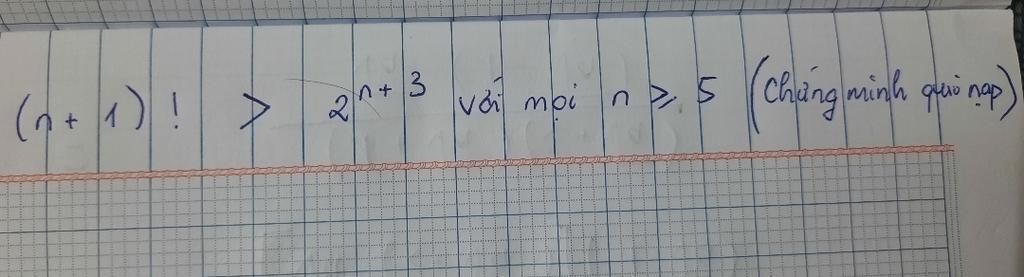 (n+1)! > 2^{n+3} với mọi n ⩾ 5 (Chứng minh quy nạp)